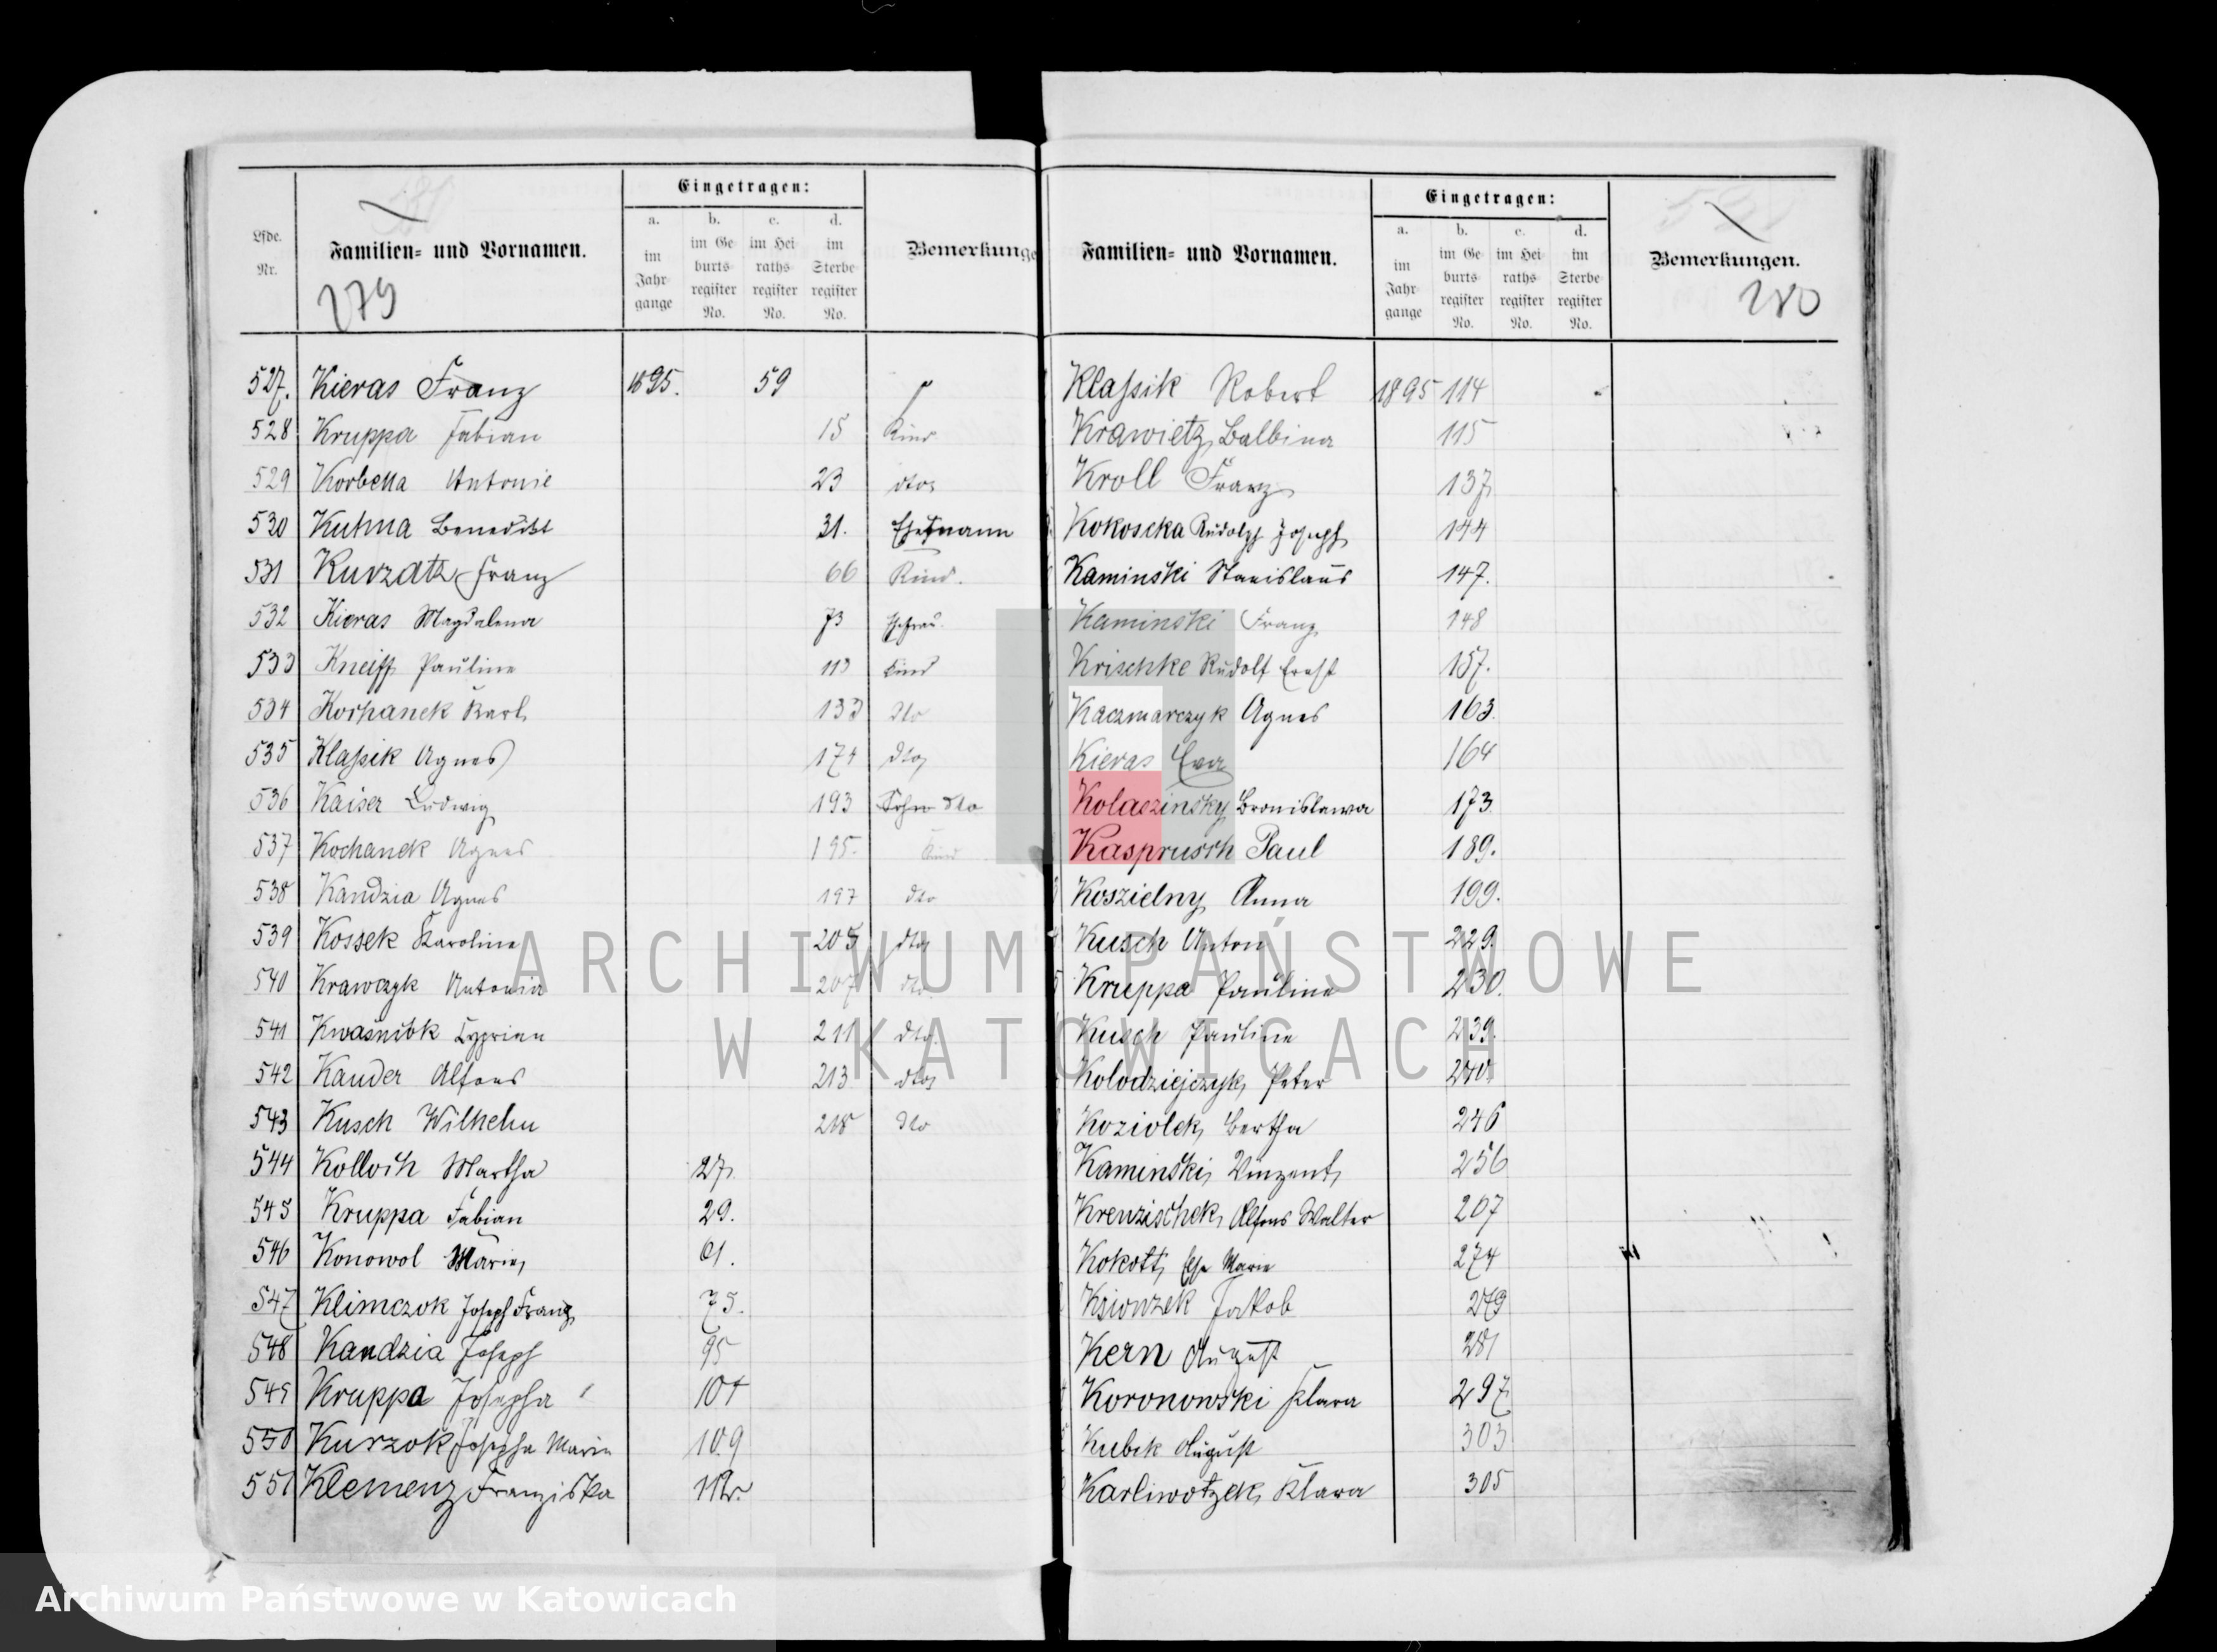 Lfde. Nr.
Familien- und Vornamen.
279
Eingetragen:
a. im Jahrgange
b. im Geburtsregister No.
c. im Heirathsregister No.
d. im Sterberegister No.
Bemerkunge
527. Kieras Franz 1895. 59
528 Kruppa Fabian 15 Kind
529 Korbella Antonie 23 dto
530 Kuhna Benedikt 31. Ehemann
531 Kurzatz Franz 66 Kind.
532 Kieras Magdalena 73 Ehefrau
533 Kneiff Pauline 113 Kind
534 Kochanek Karl 133 dto
535 Klassik Agnes 174 dto
536 Kaiser Ludwig 193 Sohn dto
537 Kochanek Agnes 195. Kind
538 Kandzia Agnes 197 dto
539 Kossek Karoline 205 dto
540 Krawczyk Antonia 207 dto
541 Kwasniok Cyprian 211 dto
542 Kauder Alfons 213 dto
543 Kusch Wilhelm 218 dto
544 Kolloch Martha 27.
545 Kruppa Fabian 29.
546 Konowol Marie 61.
547 Klimczok Joseph Franz 75.
548 Kandzia Joseph 95
549 Kruppa Josepha 104
550 Kurzok Josepha Marie 109
551 Klemenz Franziska
Familien- und Vornamen.
Eingetragen:
a. im Jahrgange
b. im Geburtsregister No.
c. im Heirathsregister No.
d. im Sterberegister No.
Bemerkungen.
280
Klassik Robert 1895 114
Krawietz Balbina 115
Kroll Franz 137
Kokoscka Rudolph Joseph 144
Kaminski Stanislaus 147.
Kaminski Franz 148
Krischke Rudolf Ernst 157.
Kaczmarczyk Agnes 163.
Kieras Eva 164
Kolaezinsky Bronislawa 173.
Kasprusch Paul 189.
Koszielny Anna 199.
Kusch Anton 229.
Kruppa Pauline 230.
Kusch Pauline 239.
Kolodziejczyk, Peter 240.
Koziolek, Bertha 246
Kaminski, Vinzent 256
Krenzischek, Alfons Walter 267
Kokott, Marie 274
Ksionzek Jakob 279
Kern August 281
Koronowski Klara 297
Kubek August 303
Karliwotzek, Klara 305
ARCHIWUM PAŃSTWOWE
W KATOWICACH
Archiwum Państwowe w Katowicach